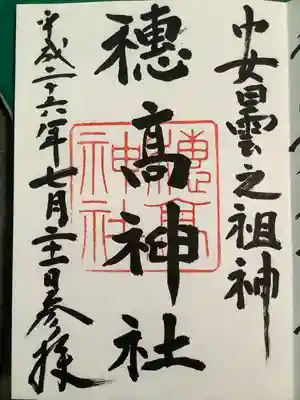 安曇之祖神
穂高神社
平成二十六年七月二十一日参拝
穂高
神社